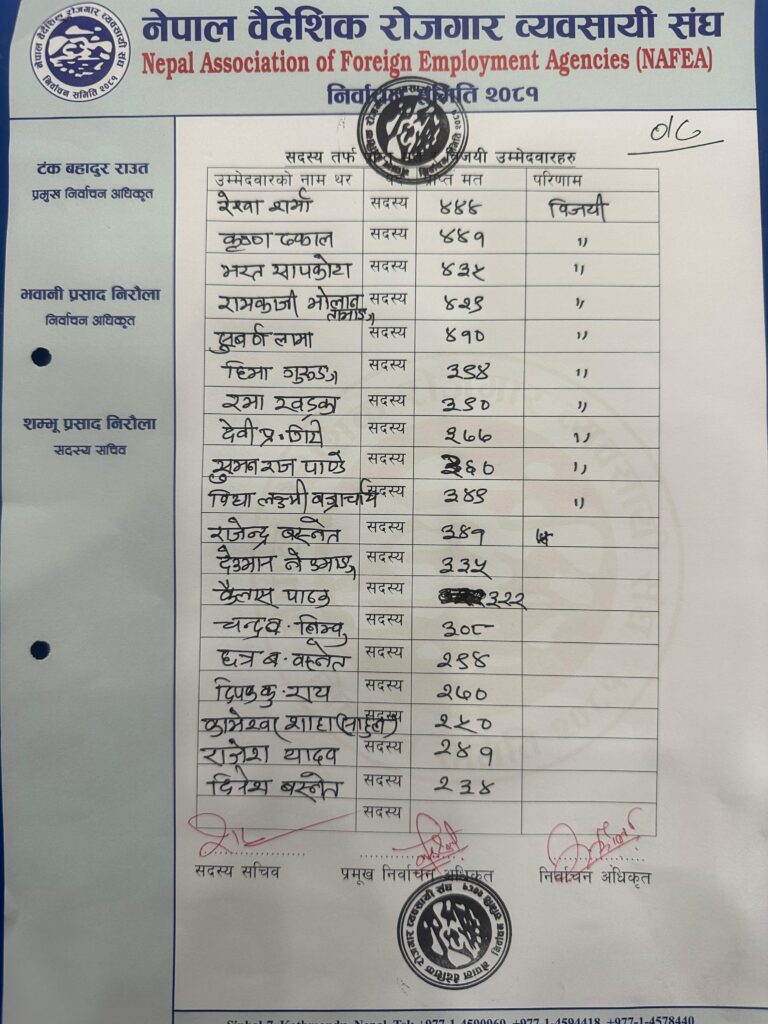 नेपाल वैदेशिक रोजगार व्यवसायी संघ
Nepal Association of Foreign Employment Agencies (NAFEA)
निर्वाचन समिति २०८१
टंक बहादुर राउत
प्रमुख निर्वाचन अधिकृत
भवानी प्रसाद निरौला
निर्वाचन अधिकृत
शम्भू प्रसाद निरौला
सदस्य सचिव
सदस्य तर्फ विजयी उम्मेदवारहरु
उम्मेदवारको नाम थर पद प्राप्त मत परिणाम
रेखा शर्मा सदस्य ४४४ विजयी
कृष्ण ढकाल सदस्य ४४१ ,,
भरत सापकोटा सदस्य ४३५ ,,
रामकाजी भोलान तामाङ सदस्य ४२९ ,,
सुवर्ण लामा सदस्य ४१० ,,
हिमा गुरुङ सदस्य ३९४ ,,
रमा खड्का सदस्य ३९० ,,
देवी प्र. गिरी सदस्य ३७७ ,,
सुमन राज पाण्डे सदस्य ३६० ,,
विद्या लक्ष्मी बज्राचार्य सदस्य ३४९ ,,
राजेन्द्र बस्नेत सदस्य ३४१
देउमान सदस्य ३३५
कैलास पाठक सदस्य ३२२
चन्द्र ब. लिम्बु सदस्य ३०८
छत्र ब. बस्नेत सदस्य २९४
दिपक कु. राय सदस्य २७०
सदस्य २५०
राजेश यादव सदस्य २४१
दिनेश बस्नेत सदस्य २३४
सदस्य
सदस्य सचिव प्रमुख निर्वाचन अधिकृत निर्वाचन अधिकृत
नेपाल वैदेशिक रोजगार व्यवसायी संघ